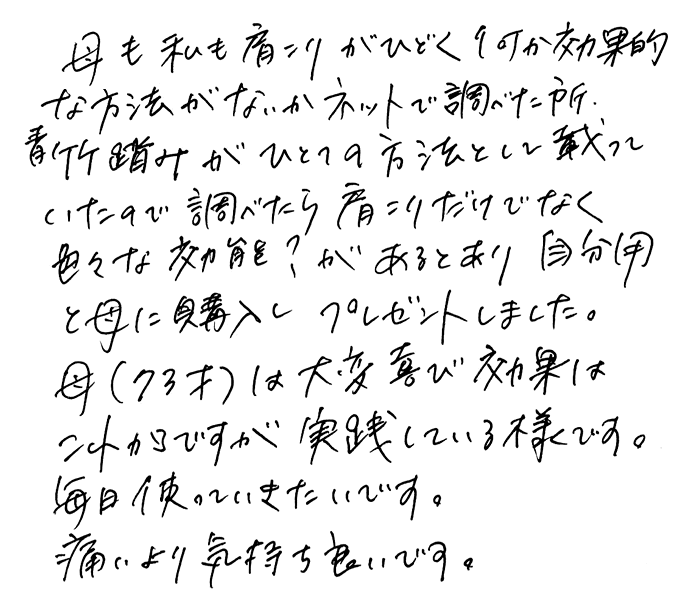 母も私も肩こりがひどく何か効果的
な方法がないかネットで調べた所、
青竹踏みがひとつの方法として載って
いたので調べたら肩こりだけでなく
色々な効能？があるとあり自分用
と母に購入し プレゼントしました。
母（73才）は大変喜び効果は
これからですが実践している様です。
毎日使っていきたいです。
痛いより気持ち良いです。